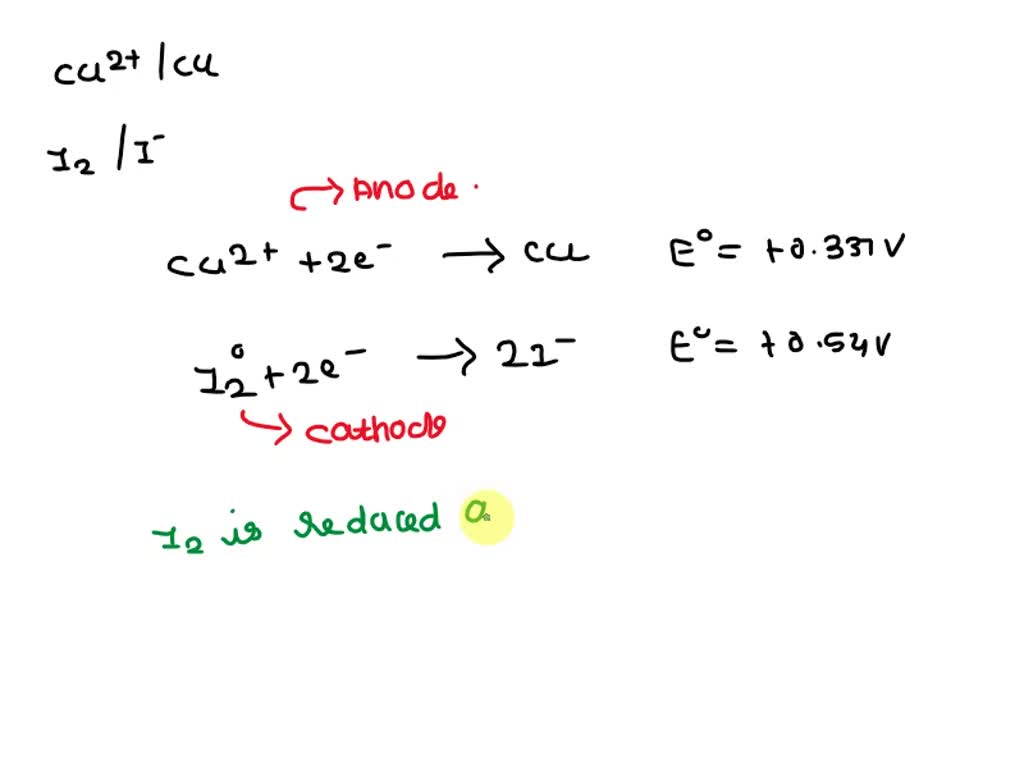 Cu²⁺ / Cu
I₂ / I⁻
→ Anode .
Cu²⁺ + 2e⁻ → Cu E⁰ = +0.337 V
I₂⁰ + 2e⁻ → 2I⁻ E⁰ = +0.54 V
→ Cathode
I₂ is reduced a